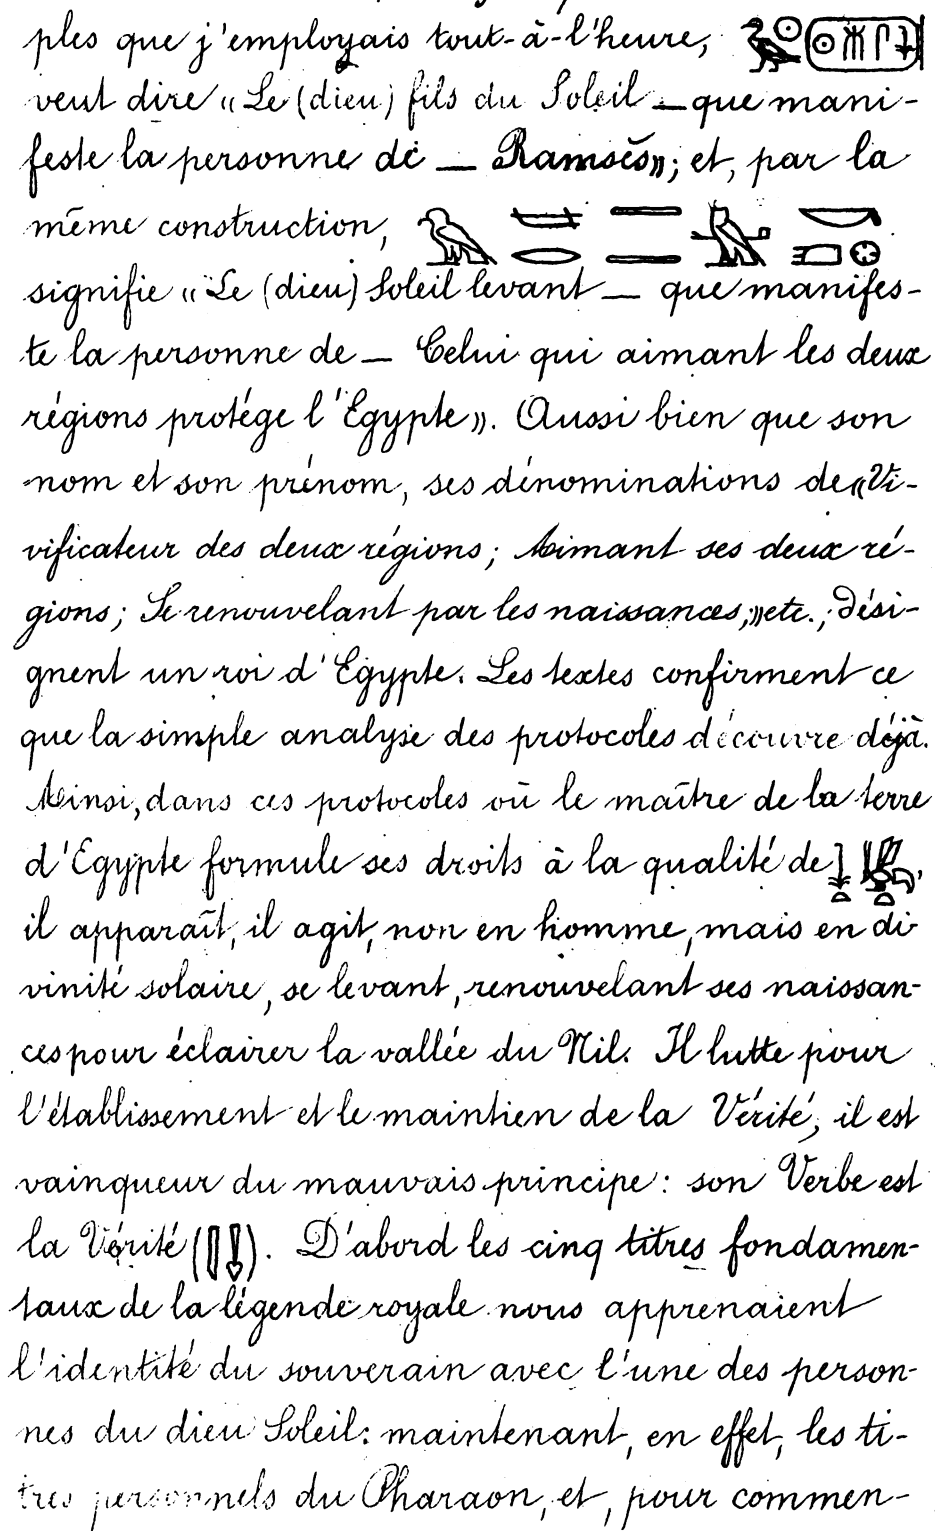 ples que j'employais tout-à-l'heure,
veut dire « Le (dieu) fils du Soleil — que mani-
feste la personne de — Ramsès »; et, par la
même construction,
signifie « Le (dieu) Soleil levant — que manifes-
te la personne de — Celui qui aimant les deux
régions protége l'Egypte ». Aussi bien que son
nom et son prénom, ses dénominations de « Vi-
vificateur des deux régions; Aimant ses deux ré-
gions; Se renouvelant par les naissances, » etc., dési-
gnent un roi d'Egypte. Les textes confirment ce
que la simple analyse des protocoles découvre déjà.
Ainsi, dans ces protocoles où le maître de la terre
d'Egypte formule ses droits à la qualité de
il apparaît, il agit, non en homme, mais en di-
vinité solaire, se levant, renouvelant ses naissan-
ces pour éclairer la vallée du Nil. Il lutte pour
l'établissement et le maintien de la Vérité, il est
vainqueur du mauvais principe: son Verbe est
la Vérité ( ). D'abord les cinq titres fondamen-
taux de la légende royale nous apprenaient
l'identité du souverain avec l'une des person-
nes du dieu Soleil: maintenant, en effet, les ti-
tres personnels du Pharaon, et, pour commen-